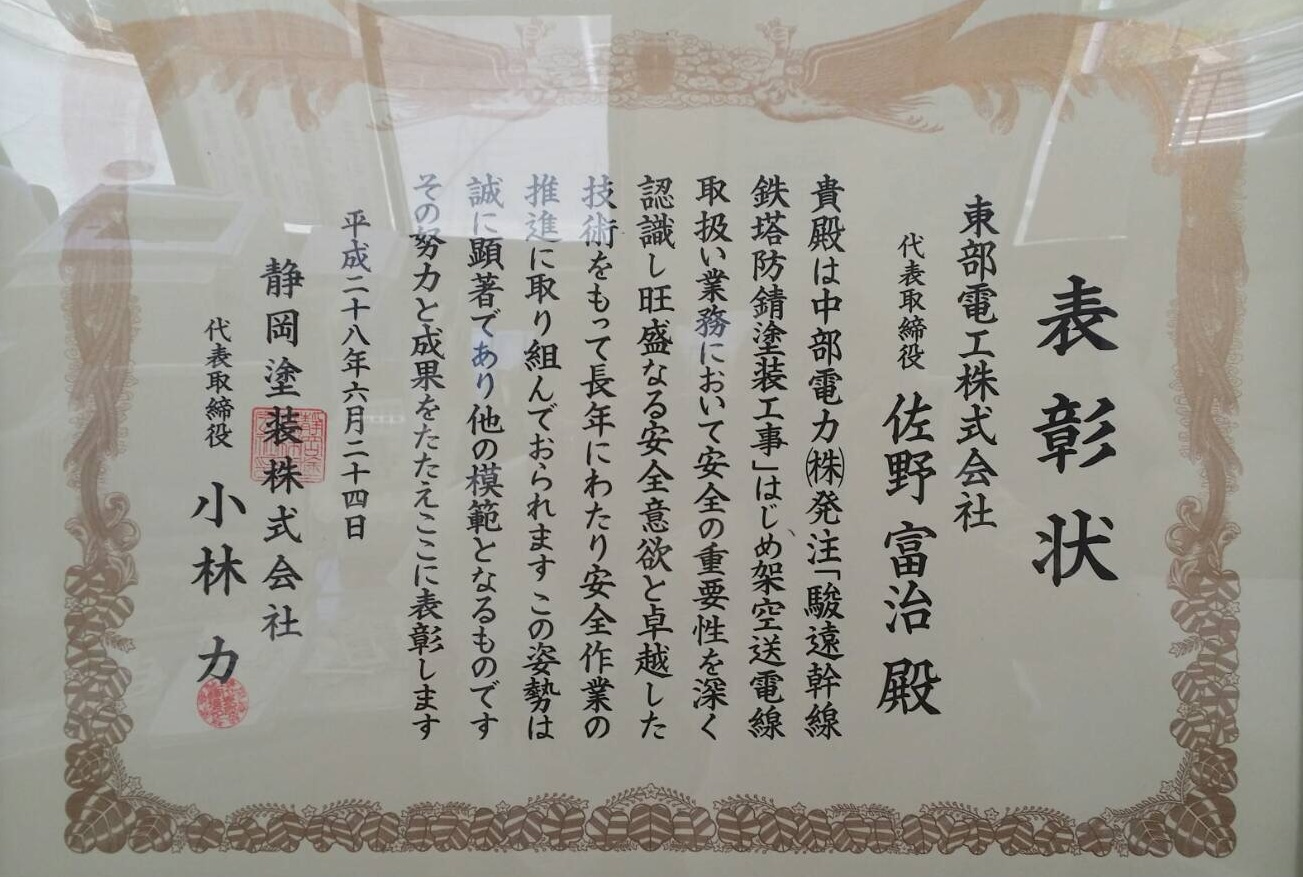 表彰状
東部電工株式会社
代表取締役 佐野富治殿
貴殿は中部電力㈱発注「駿遠幹線
鉄塔防錆塗装工事」はじめ架空送電線
取扱い業務において安全の重要性を深く
認識し旺盛なる安全意欲と卓越した
技術をもって長年にわたり安全作業の
推進に取り組んでおられます この姿勢は
誠に顕著であり他の模範となるものです
その努力と成果をたたえここに表彰します
平成二十八年六月二十四日
静岡塗装株式会社
代表取締役 小林 力